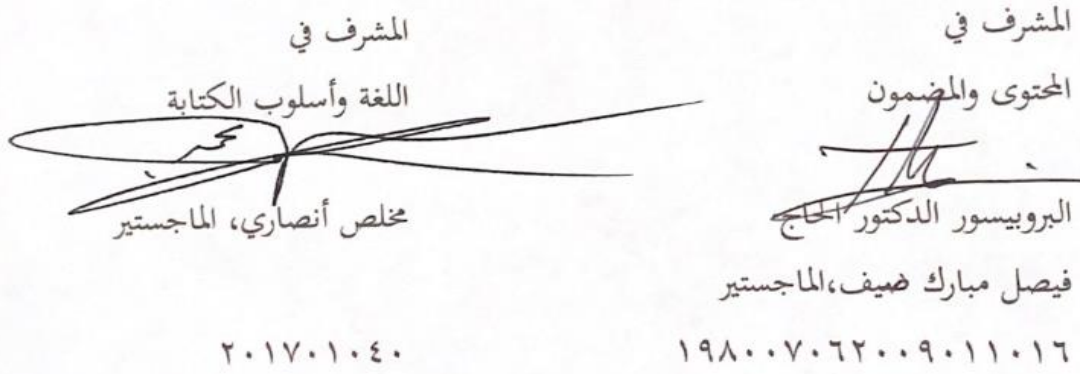 المشرف في
المحتوى والمضمون
البروبيسور الدكتور الحاج
فيصل مبارك ضيف،الماجستير
١٩٨٠٠٧٠٦٢٠٠٩٠١١٠١٦
المشرف في
اللغة وأسلوب الكتابة
مخلص أنصاري، الماجستير
٢٠١٧٠١٠٤٠